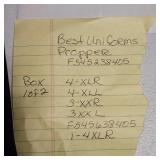 Best Uniforms
Propper
F545238405
Box 4-XLR
1 of 2 4-XLL
3-XXR
3XXL
F545638405
1-4XLR